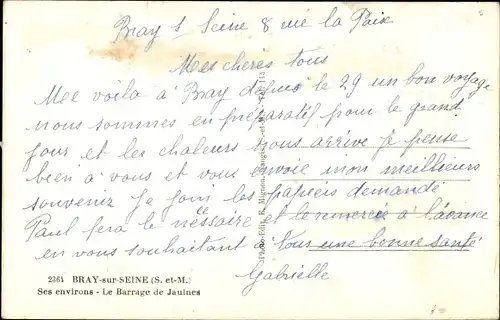 Bray s Seine 8 rue la Paix
Mes chères tous
Me voila à Bray depuis le 29 un bon voyage
nous sommes en préparatif pour le grand
jour et les chaleurs nous arrive je pense
bien à vous et vous envoie mon meilleurs
souvenir je join les papiers demandé
Paul fera le nessaire et le remercie à l'avance
ce
en vous souhaitant à tous une bonne santé
Gabrielle
2364 BRAY-sur-SEINE (S. et-M.)
Ses environs - Le Barrage de Jaulnes
Photo-Edit. R. Mignon, Nangis